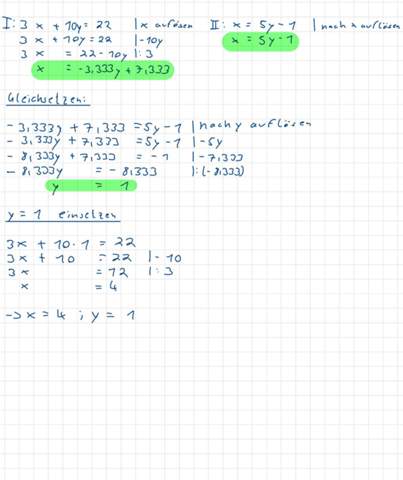 I: 3x + 10y = 22 | x auflösen II: x = 5y - 1 | nach x auflösen
3x + 10y = 22 | -10y x = 5y - 1
3x = 22 - 10y | :3
x = -3,333y + 7,333
Gleichsetzen:
- 3,333y + 7,333 = 5y - 1 | nach y auflösen
- 3,333y + 7,333 = 5y - 1 | -5y
- 8,333y + 7,333 = -1 | -7,333
- 8,333y = -8,333 | :(-8,333)
y = 1
y = 1 einsetzen
3x + 10·1 = 22
3x + 10 = 22 | -10
3x = 12 | :3
x = 4
-> x = 4 ; y = 1